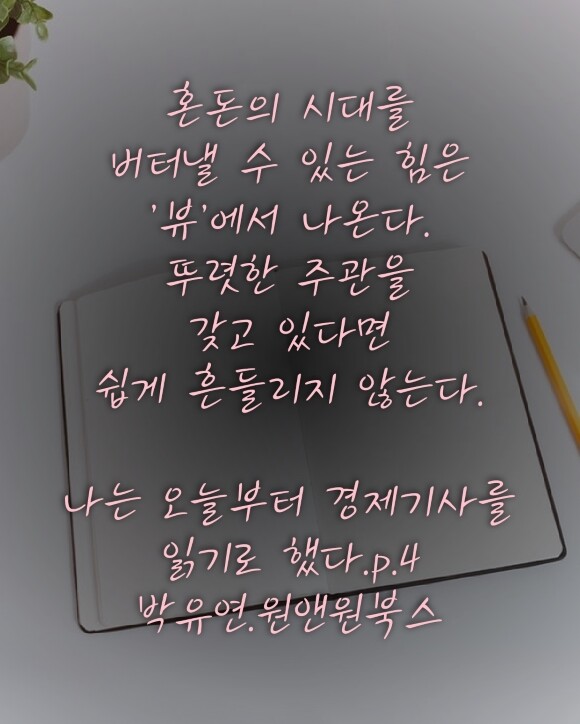 혼돈의 시대를
버터낼 수 있는 힘은
'뷰'에서 나온다.
뚜렷한 주관을
갖고 있다면
쉽게 흔들리지 않는다.
나는 오늘부터 경제기사를
읽기로 했다.p.4
박유연.원앤원북스